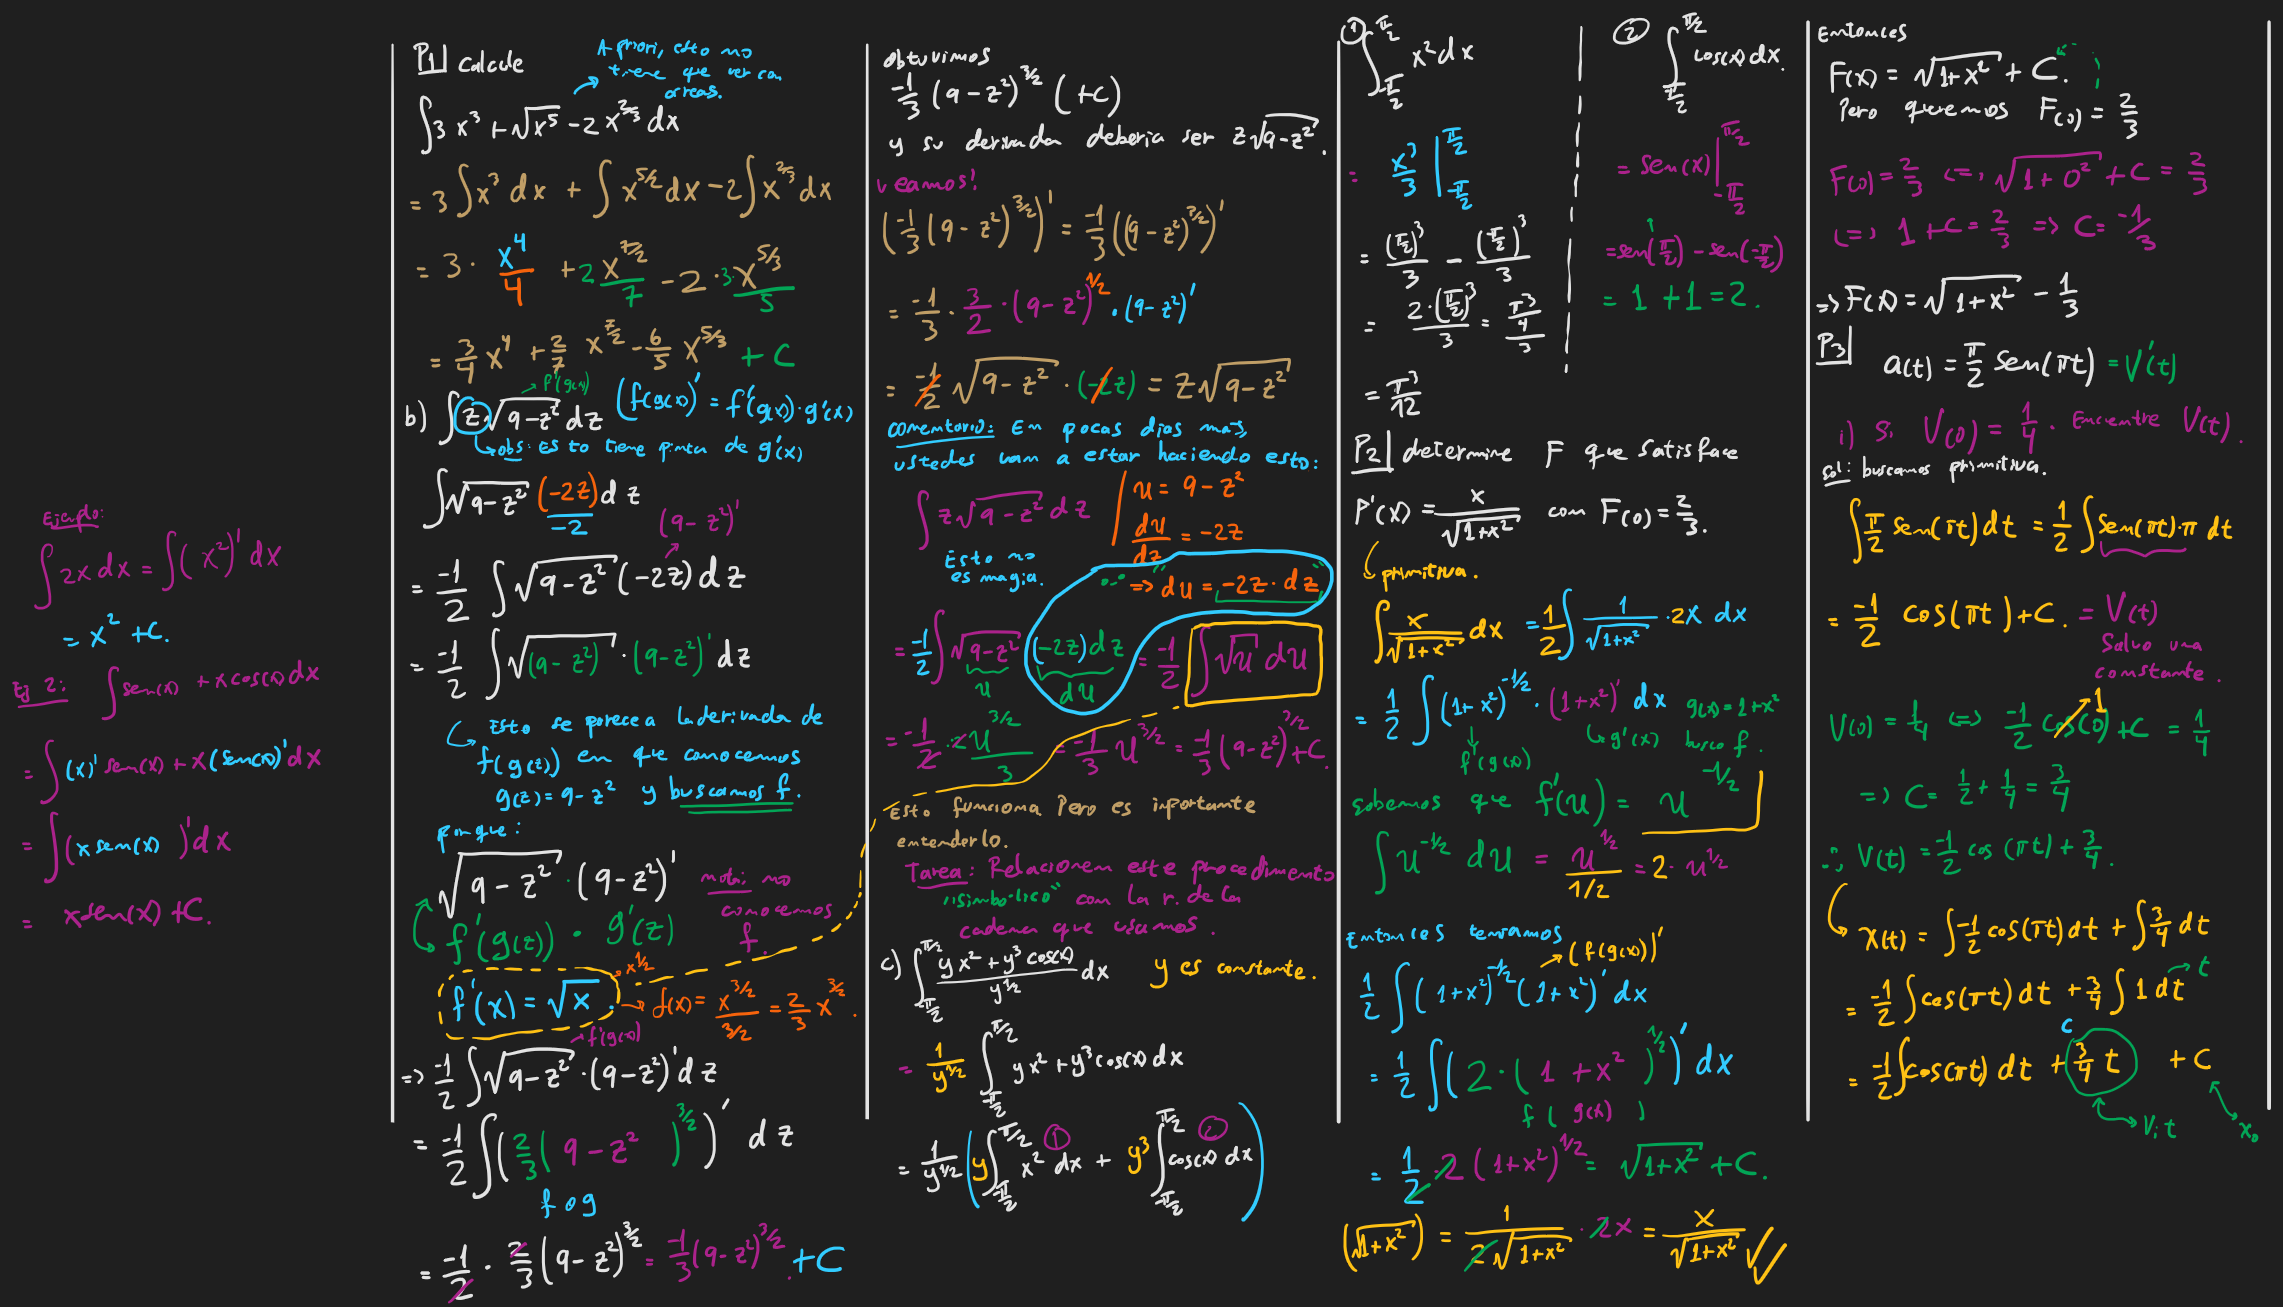 Ejemplo:
∫ 2x dx = ∫ (x²)' dx
= x² + C.
Ej 2: ∫ sen(x) + x cos(x) dx
= ∫ (x)' sen(x) + x (sen(x))' dx
= ∫ (x sen(x))' dx
= x sen(x) + C.
P1| Calcule
A priori, esto no
tiene que ver con
areas.
∫ 3x³ + √x⁵ - 2x^{2/3} dx
= 3∫x³ dx + ∫x^{5/2} dx - 2∫x^{2/3} dx
= 3 · x⁴/4 + 2x^{7/2}/7 - 2 · 3 · x^{5/3}/5
= 3/4 x⁴ + 2/7 x^{7/2} - 6/5 x^{5/3} + C
→ f'(g(x))
b) ∫ z√(9-z²) dz (f(g(x))' = f'(g(x))·g'(x)
↳ obs: Esto tiene pinta de g'(x)
∫ √(9-z²) (-2z)/-2 dz
(9-z²)'
= -1/2 ∫ √(9-z²) (-2z) dz
= -1/2 ∫ √(9-z²) · (9-z²)' dz
↳ Esto se parece a la derivada de
f(g(z)) en que conocemos
g(z) = 9-z² y buscamos f.
porque:
√(9-z²) · (9-z²)'
f'(g(z)) · g'(z)
nota: no
conocemos
f.
f'(x) = √x → x^{1/2}
→ f(x) = x^{3/2}/(3/2) = 2/3 x^{3/2}.
→ f'(g(x))
=> -1/2 ∫ √(9-z²) · (9-z²)' dz
= -1/2 ∫ (2/3 (9-z²)^{3/2})' dz
f o g
= -1/2 · 2/3 (9-z²)^{3/2} = -1/3 (9-z²)^{3/2} + C
obtuvimos
-1/3 (9-z²)^{3/2} (+C)
y su derivada deberia ser z√(9-z²).
veamos!
(-1/3 (9-z²)^{3/2})' = -1/3 ((9-z²)^{3/2})'
= -1/3 · 3/2 · (9-z²)^{1/2} · (9-z²)'
= -1/2 √(9-z²) · (-2z) = z√(9-z²)
comentario: En pocas dias mas,
ustedes van a estar haciendo esto:
∫ z√(9-z²) dz | u = 9-z²
du/dz = -2z
Esto no
es magia.
=> du = -2z · dz
= -1/2 ∫ √(9-z²) (-2z) dz = -1/2 ∫ √u du
u du
= -1/2 · 2u^{3/2}/3 = -1/3 u^{3/2} = -1/3 (9-z²)^{3/2} + C.
Esto funciona Pero es importante
entenderlo.
Tarea: Relacionen este procedimiento
"simbolico" con la r. de la
cadena que usamos.
c) ∫_{-π/2}^{π/2} (yx² + y³cos(x))/y^{1/2} dx y es constante.
= 1/y^{1/2} ∫_{-π/2}^{π/2} yx² + y³cos(x) dx
= 1/y^{1/2} (y ∫_{-π/2}^{π/2} x² dx + y³ ∫_{-π/2}^{π/2} cos(x) dx)
① ②
① ∫_{-π/2}^{π/2} x² dx
= x³/3 |_{-π/2}^{π/2}
= (π/2)³/3 - (-π/2)³/3
= 2·(π/2)³/3 = (π³/4)/3
= π³/12
② ∫_{-π/2}^{π/2} cos(x) dx.
= sen(x) |_{-π/2}^{π/2}
= sen(π/2) - sen(-π/2)
= 1 + 1 = 2.
P2| determine F que satisface
F'(x) = x/√(1+x²) con F(0) = 2/3.
↳ primitiva.
∫ x/√(1+x²) dx = 1/2 ∫ 1/√(1+x²) · 2x dx
= 1/2 ∫ (1+x²)^{-1/2} · (1+x²)' dx
g(x) = 1+x²
busco f.
f'(g(x)) ↳ g'(x)
sabemos que f'(u) = u^{-1/2}
∫ u^{-1/2} du = u^{1/2}/(1/2) = 2 · u^{1/2}
Entonces teniamos
→ (f(g(x)))'
1/2 ∫ (1+x²)^{-1/2} (1+x²)' dx
= 1/2 ∫ (2 · (1+x²)^{1/2})' dx
f ( g(x) )
= 1/2 · 2 (1+x²)^{1/2} = √(1+x²) + C.
(√(1+x²)) = 1/(2√(1+x²)) · 2x = x/√(1+x²) ✓✓
Entonces
F(x) = √(1+x²) + C.
Pero queremos F(0) = 2/3
F(0) = 2/3 <=> √(1+0²) + C = 2/3
<=> 1 + C = 2/3 => C = -1/3
=> F(x) = √(1+x²) - 1/3
P3|
a(t) = π/2 sen(πt) = V'(t)
i) Si V(0) = 1/4. Encuentre V(t).
sol: buscamos primitiva.
∫ π/2 sen(πt) dt = 1/2 ∫ sen(πt)·π dt
= -1/2 cos(πt) + C. = V(t)
Salvo una
constante.
V(0) = 1/4 <=> -1/2 cos(0) + C = 1/4
1
=> C = 1/2 + 1/4 = 3/4
∴ V(t) = -1/2 cos(πt) + 3/4.
x(t) = ∫ -1/2 cos(πt) dt + ∫ 3/4 dt
= -1/2 ∫ cos(πt) dt + 3/4 ∫ 1 dt → t
= -1/2 ∫ cos(πt) dt + 3/4 t + C
c
Vi t
x₀